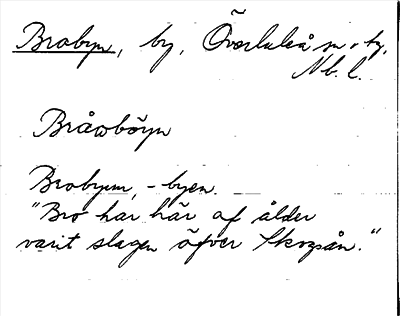 Brobyn, by, Överluleå sn o. tg,
Nb. l.
Bråwböyn
Brobynn, -byen
"Bro har här af ålder
varit slagen öfver Skogsån."